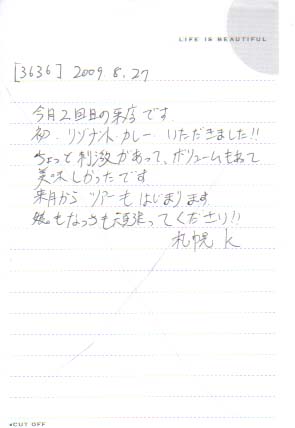 LIFE IS BEAUTIFUL
[3636] 2009.8.27
今月2回目の来店です
初・リゾナント・カレー いただきました!!
ちょっと刺激があって、ボリュームもあって
美味しかったです
来月から ツアーも はじまります
もなっきも頑張ってください!!
札幌 K
CUT OFF